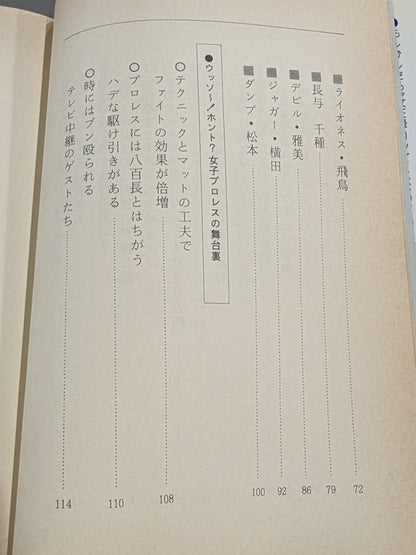 ライオネス・飛鳥……72
長与 千種……79
デビル・雅美……86
ジャガー・横田……92
ダンプ・松本……100
●ウッソ〜!ホント?女子プロレスの舞台裏
○テクニックとマットの工夫で
ファイトの効果が倍増……108
○プロレスには八百長とはちがう
ハデな駆け引きがある……110
○時にはブン殴られる
テレビ中継のゲストたち……114